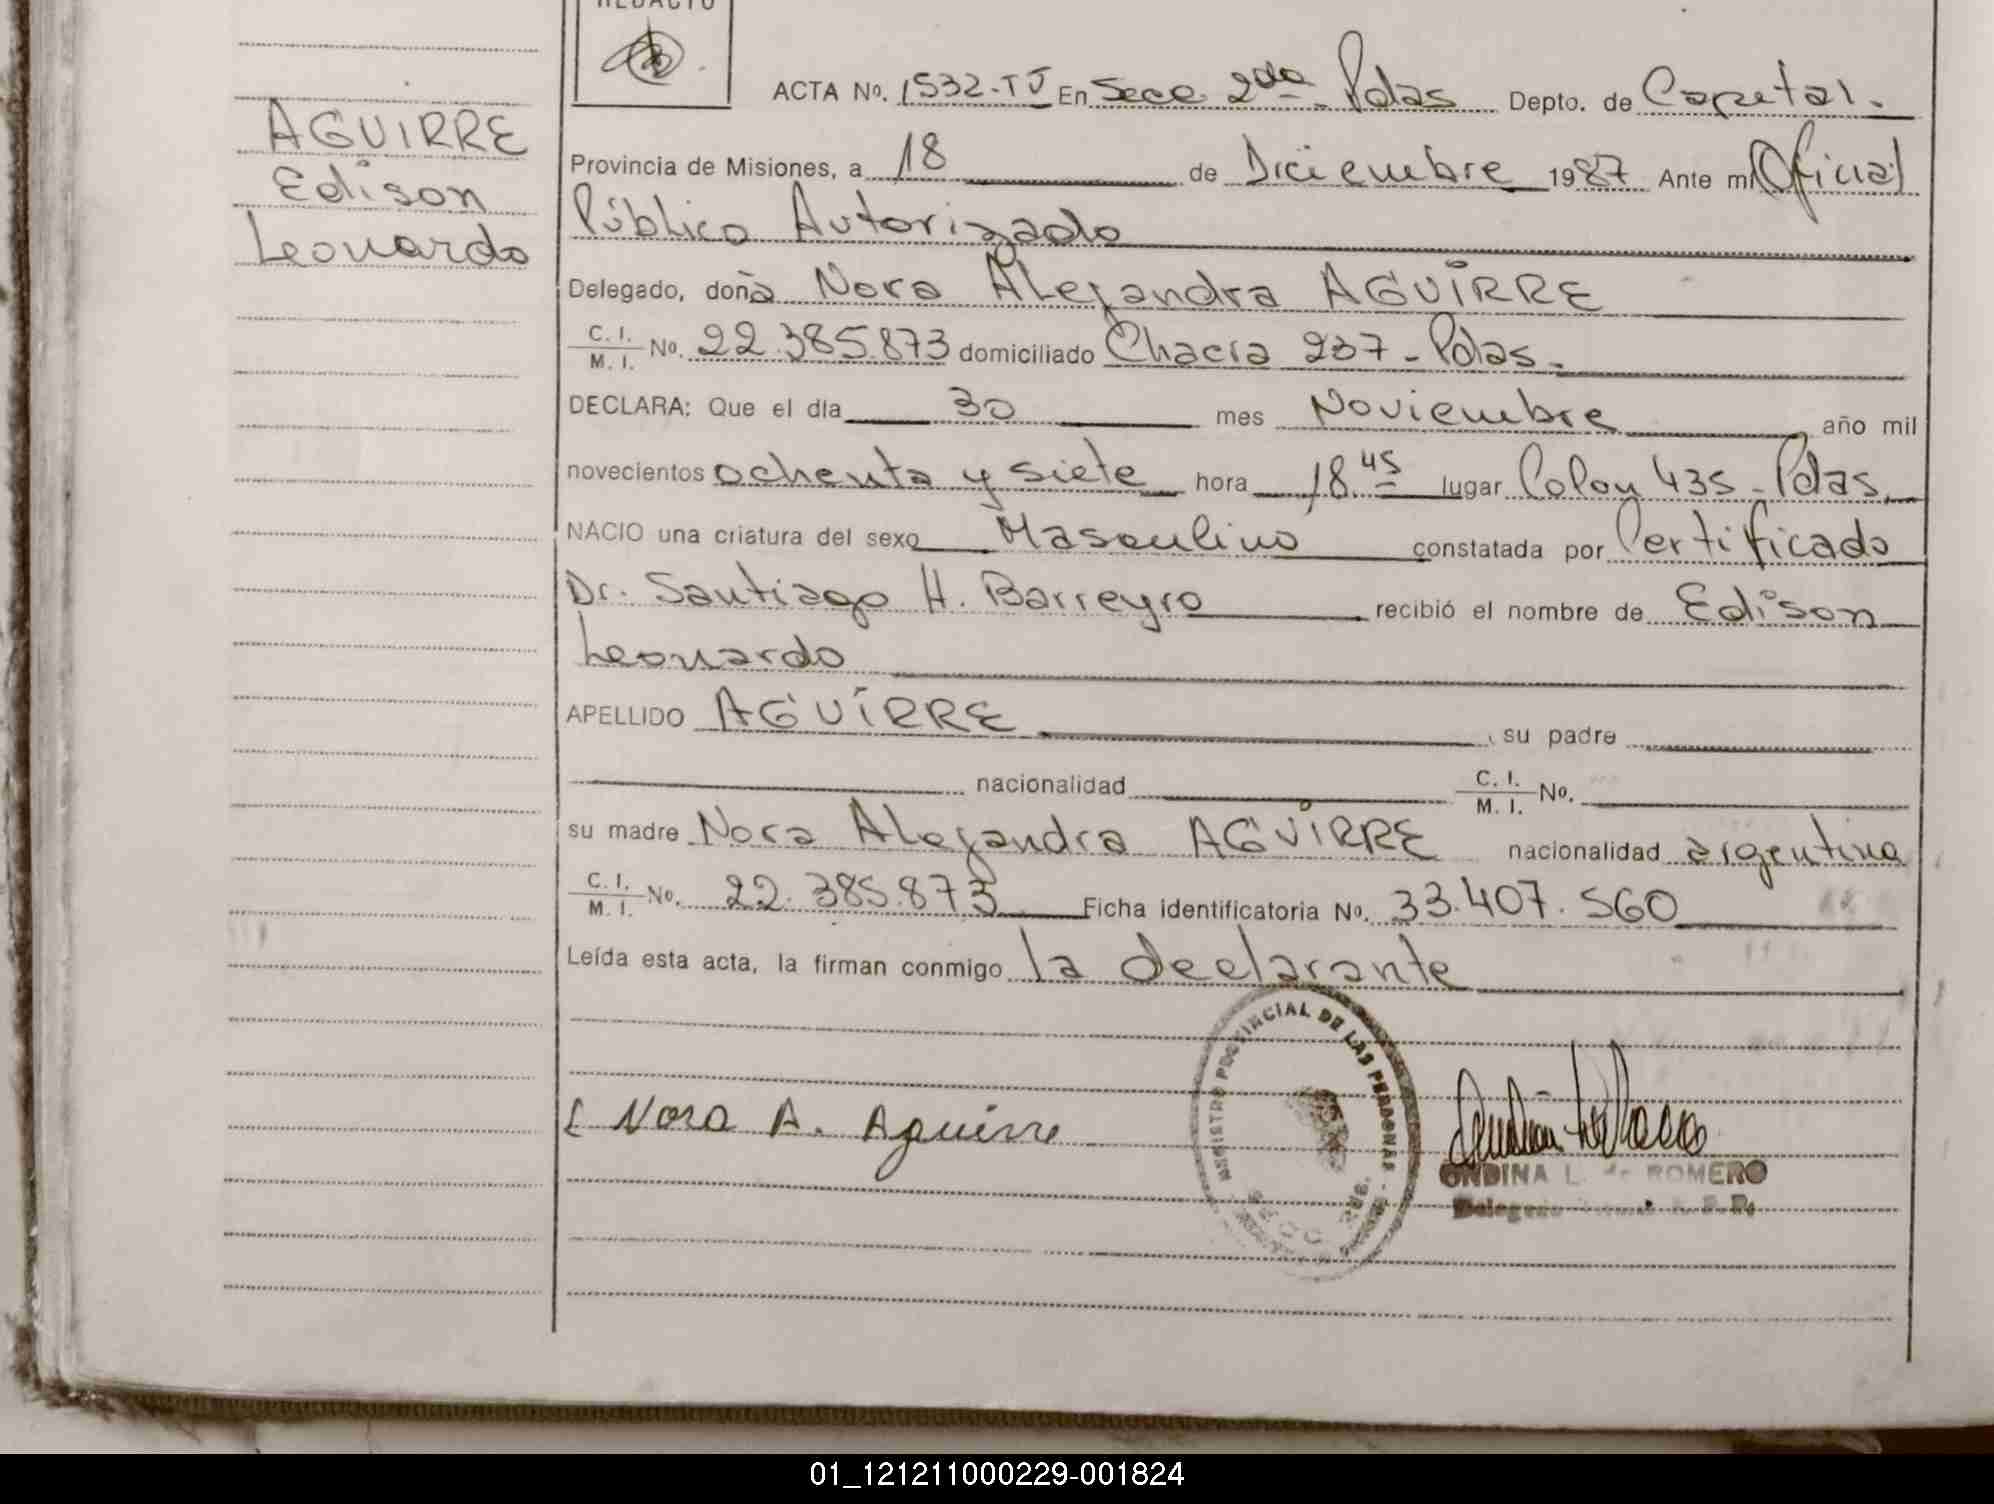 REDACTO
ACTA Nº. 1532-TJ En Secc. 2da Pdas Depto. de Capital.
AGUIRRE
Edison
Leonardo
Provincia de Misiones, a 18 de Diciembre 1987 Ante mí Oficial
Público Autorizado
Delegado, doña Nora Alejandra AGUIRRE
C. I. / M. I. Nº. 22.385.873 domiciliado Chacra 237 - Pdas.
DECLARA: Que el día 30 mes Noviembre año mil
novecientos ochenta y siete hora 18.45 lugar Colon 435 - Pdas.
NACIO una criatura del sexo Masculino constatada por Certificado
Dr. Santiago H. Barreyro recibió el nombre de Edison
Leonardo
APELLIDO AGUIRRE, su padre
nacionalidad C. I. / M. I. Nº.
su madre Nora Alejandra AGUIRRE nacionalidad argentina
C. I. / M. I. Nº. 22.385.873 Ficha identificatoria Nº. 33.407.560
Leída esta acta, la firman conmigo la declarante
REGISTRO PROVINCIAL DE LAS PERSONAS
Nora A. Aguirre
ONDINA L. de ROMERO
01_121211000229-001824